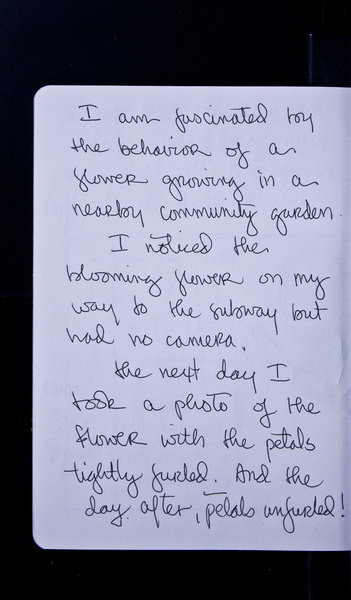 I am fascinated by
the behavior of a
flower growing in a
nearby community garden.
I noticed the
blooming flower on my
way to the subway but
had no camera.
the next day I
took a photo of the
flower with the petals
tightly furled. And the
day after, petals unfurled!